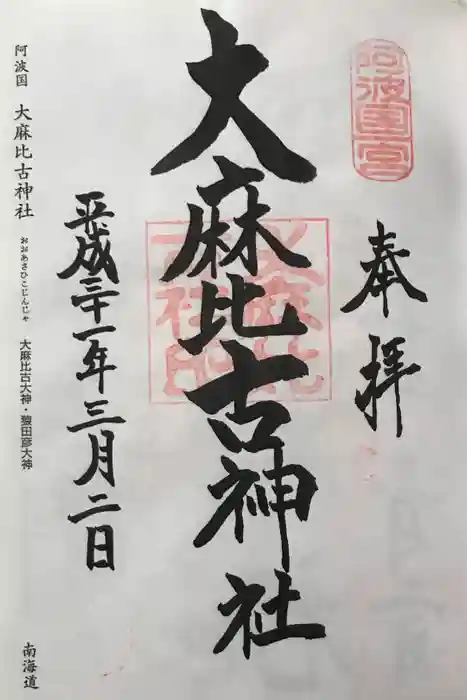 阿波国一宮
奉拝
大麻比古神社
大麻比古神社印
平成三十一年三月二日
阿波国 大麻比古神社 おおあさひこじんじゃ 大麻比古大神・猿田彦大神 南海道